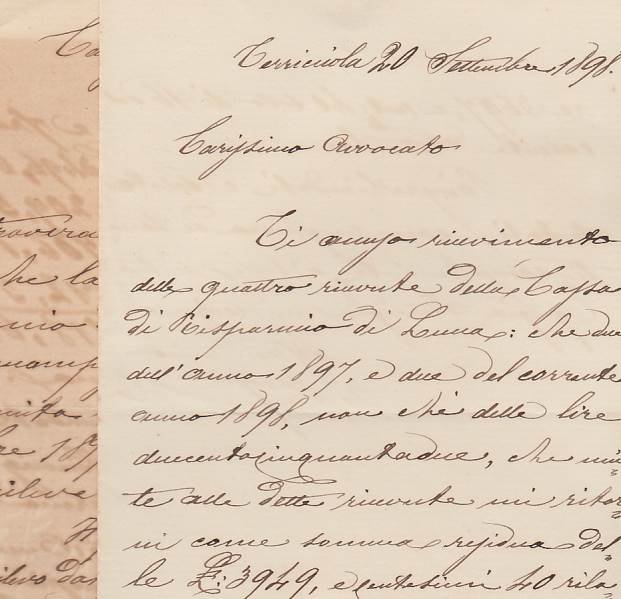 Terricciola 20 Settembre 1898.
Carissimo Avvocato
Ti accuso ricevimento
delle quattro ricevute della Cassa
di Risparmio di Lucca: che due
dell'anno 1897, e due del corrente
anno 1898, non chè delle lire
duecentocinquantadue, che uni=
te alle dette ricevute mi ritor=
ni come somma residua del=
le L: 3949, e centesimi 40 rila=
Ca
troverà
che la
nio
uamp
nita
re 187
rileve